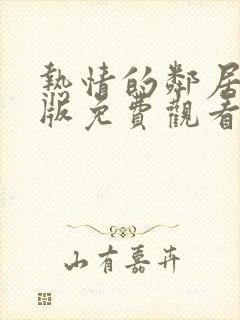 熱情的鄰居
版免費觀看
山有嘉卉